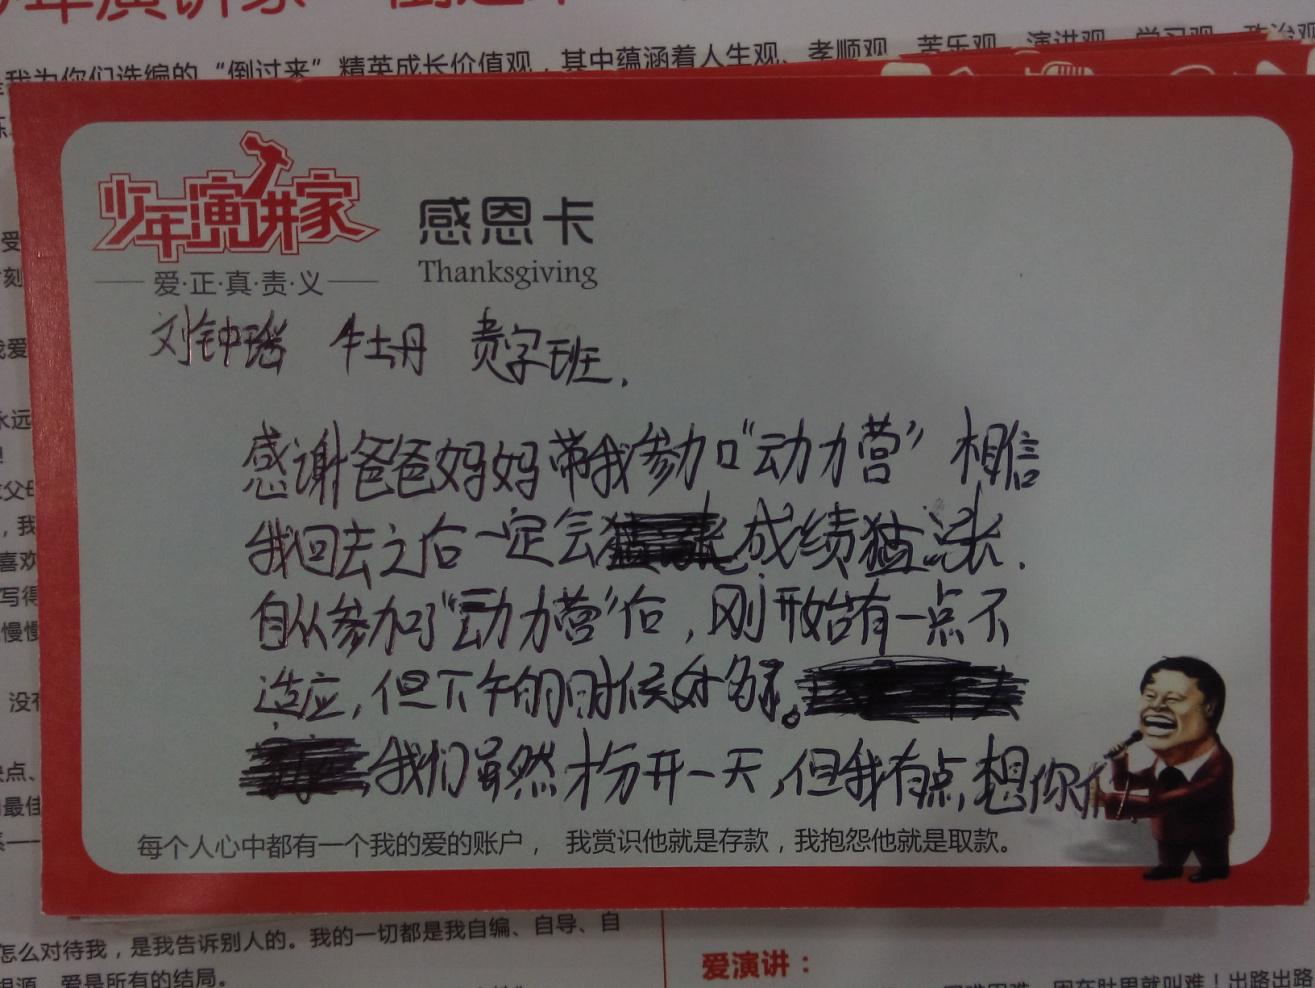 我为你们选编的“倒过来”精英成长价值观，其中蕴涵着人生观、孝顺观、苦乐观、演讲观、学习观、政治观
少年演讲家
爱·正·真·责·义
感恩卡
Thanksgiving
刘钟瑶 牡丹 责字班.
感谢爸爸妈妈带我参加“动力营”相信
我回去之后一定会成绩猛涨.
自从参加了“动力营”后,刚开始有一点不
适应,但下午的时候好多了。
我们虽然才分开一天,但我有点想你们.
每个人心中都有一个我的爱的账户， 我赏识他就是存款，我抱怨他就是取款。
怎么对待我，是我告诉别人的。我的一切都是我自编、自导、自
根源，爱是所有的结局。
爱演讲：